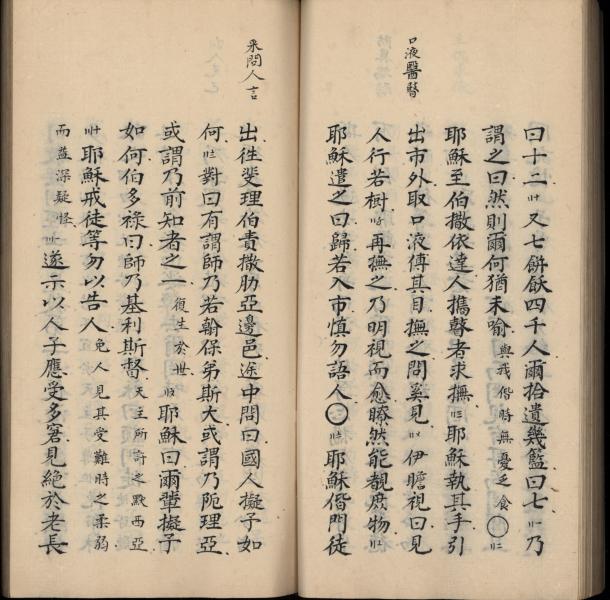 口液醫瞽
曰十二又七餅飫四千人爾拾遺幾籃曰七乃
謂之曰然則爾何猶未喻與我偕時無憂乏食〇
耶穌至伯撒依達人攜瞽者求撫耶穌執其手引
出市外取口液傅其目撫之問奚見伊瞻視曰見
人行若樹再撫之乃明視而愈瞭然能覩庶物
耶穌遣之曰歸若入市慎勿語人〇耶穌偕門徒
采問人言
出徃斐理伯責撒肋亞邊邑途中問曰國人擬予如
何對曰有謂師乃若翰保弟斯大或謂乃阨理亞
或謂乃前知者之一復生於世耶穌曰爾輩擬予
如何伯多祿曰師乃基利斯督天主所許之默西亞
耶穌戒徒等勿以告人免人見其受難時之柔弱
而益深疑怪遂示以人子應受多窘見絕於老長